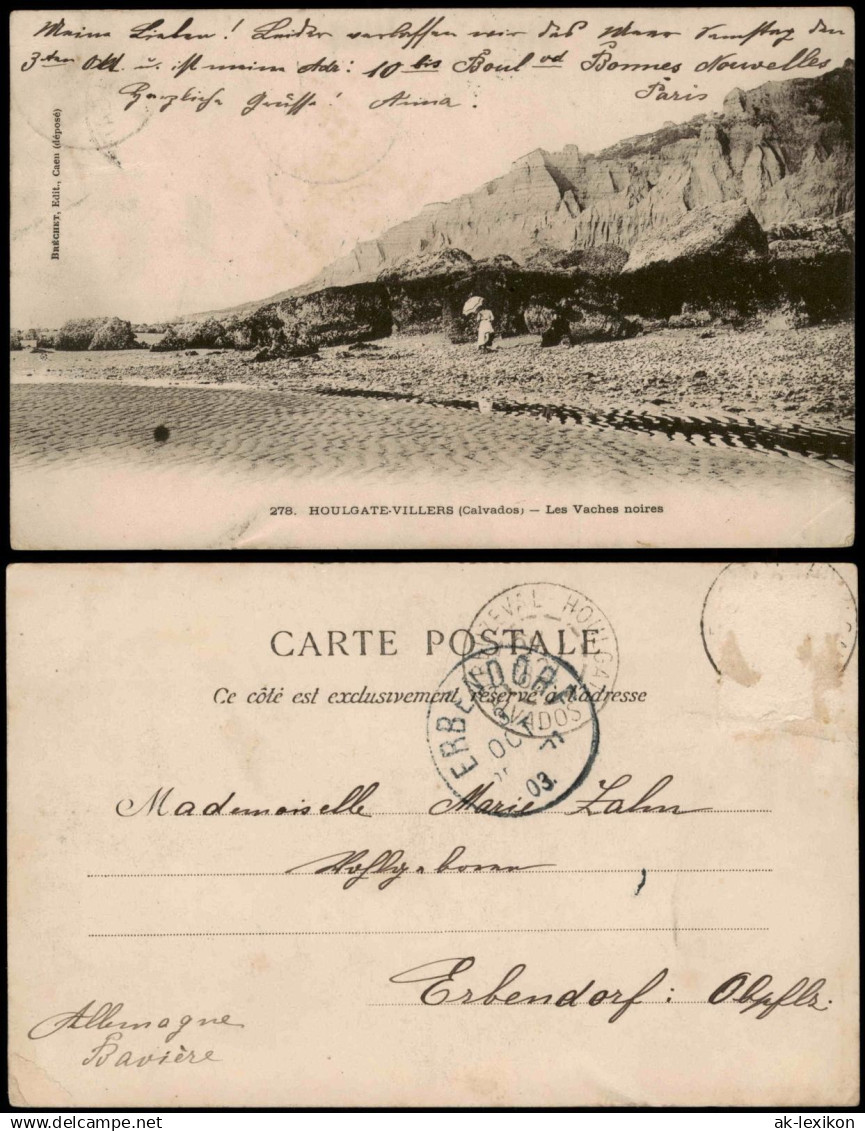 Meine Lieben! Leider verlassen wir das Meer Samstag den
3ten Okt. u. ist meine Adr: 10 bis Boulvd Bonnes Nouvelles
Herzliche Grüsse! Anna. Paris
BRÉCHET, Edit., Caen (déposé)
278. HOULGATE-VILLERS (Calvados) — Les Vaches noires
CARTE POSTALE
Ce côté est exclusivement réservé à l'adresse
BEUZEVAL HOULGATE
CALVADOS
ERBENDORF
OCT
03.
Mademoiselle Marie Zahn
Wohlgeboren
Erbendorf: Obpflz.
Allemagne
Bavière
ansichtskarten-lexikon.de
ak-lexikon